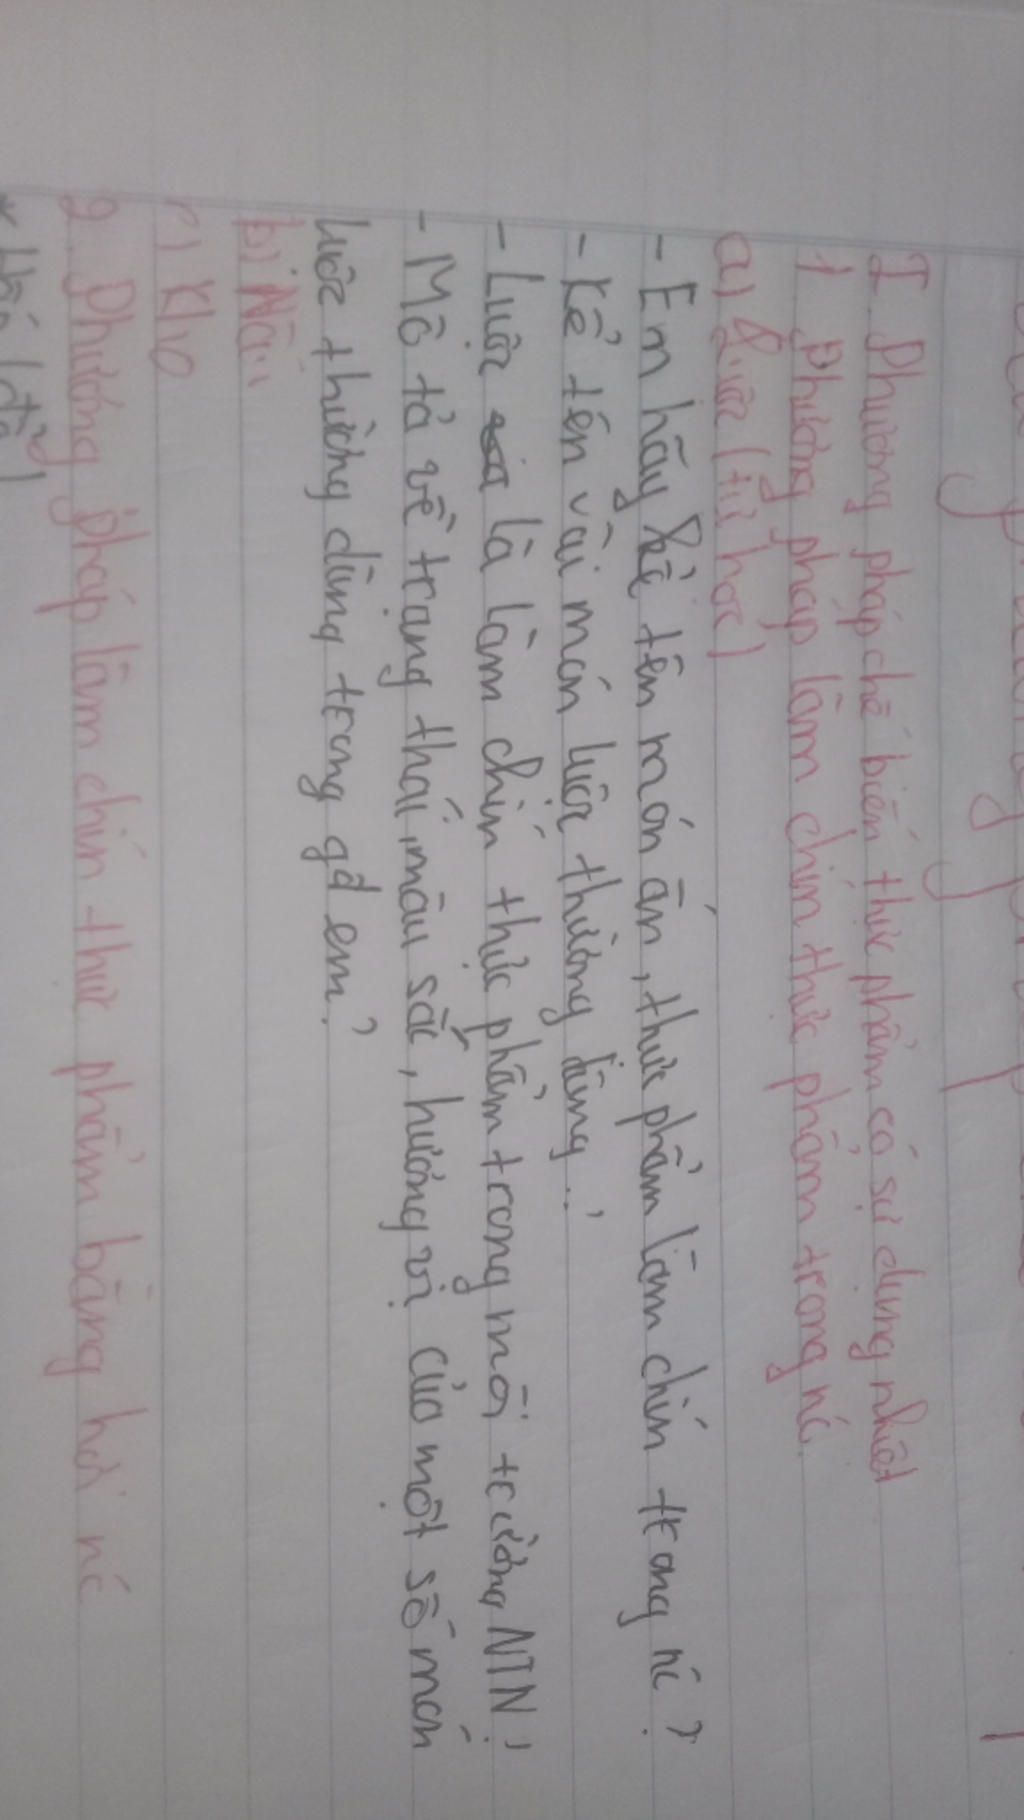 I. Phương pháp chế biến thực phẩm có sự dụng nhiệt
1. Phương pháp làm chín thực phẩm trong nc.
a) Luộc (tự học)
- Em hãy kể tên món ăn, thực phẩm làm chín trong nc?
- Kể tên vài món luộc thường dùng..?
- Luộc là làm chín thực phẩm trong môi trường NTN?
- Mô tả về trạng thái, màu sắc, hương vị của một số món
luộc thường dùng trong gđ em?
b) Nấu
c) Kho
2. Phương pháp làm chín thực phẩm bằng hơi nc
* Hấp (đồ)